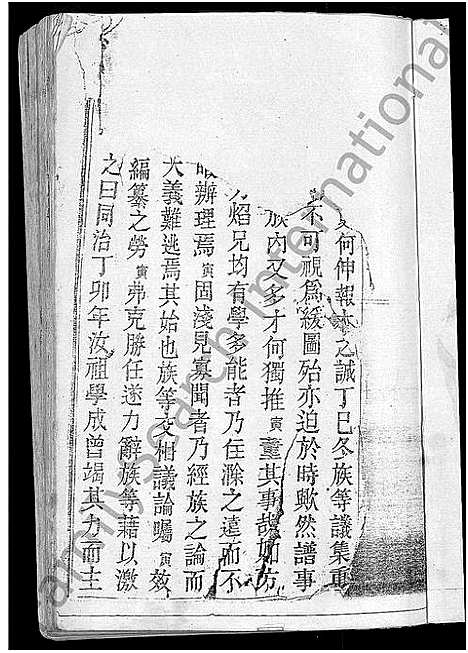 何伸報本之誠丁巳冬族等議集重
不可視為緩圖殆亦迫於時歟然譜事
族內又多才何獨推寅董其事哉如方
焰兄均有學多能者乃住滁之遠而不
暇辦理焉寅固淺見寡聞者乃經族之論而
大義難逃焉其始也族等交相議論囑寅效
編纂之勞寅弗克勝任遂力辭族等藉以激
之曰同治丁卯年汝祖學成曾竭其力而主
Family Search International